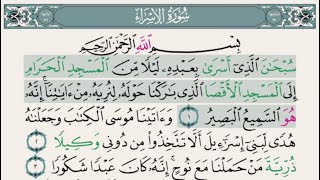 سُورَةُ الإِسۡرَاءِ
بِسۡمِ ٱللَّهِ ٱلرَّحۡمَٰنِ ٱلرَّحِيمِ
سُبۡحَٰنَ ٱلَّذِيٓ أَسۡرَىٰ بِعَبۡدِهِۦ لَيۡلٗا مِّنَ ٱلۡمَسۡجِدِ ٱلۡحَرَامِ
إِلَى ٱلۡمَسۡجِدِ ٱلۡأَقۡصَا ٱلَّذِي بَٰرَكۡنَا حَوۡلَهُۥ لِنُرِيَهُۥ مِنۡ ءَايَٰتِنَآۚ إِنَّهُۥ
هُوَ ٱلسَّمِيعُ ٱلۡبَصِيرُ ١ وَءَاتَيۡنَا مُوسَى ٱلۡكِتَٰبَ وَجَعَلۡنَٰهُ
هُدٗى لِّبَنِيٓ إِسۡرَٰٓءِيلَ أَلَّا تَتَّخِذُواْ مِن دُونِي وَكِيلٗا ٢
ذُرِّيَّةَ مَنۡ حَمَلۡنَا مَعَ نُوحٍۚ إِنَّهُۥ كَانَ عَبۡدٗا شَكُورٗا ٣